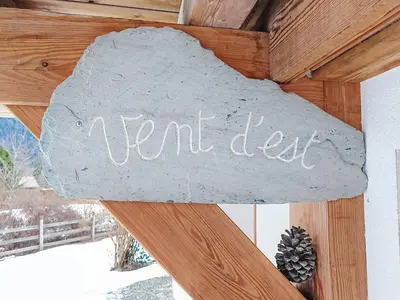 Vent d'est